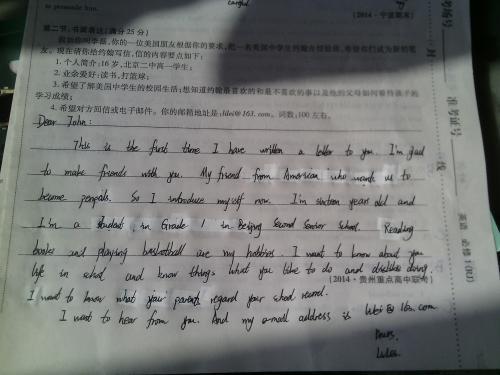 to persuade him.
(2014·宁波期末)
第二节:书面表达(满分25分)
1.个人简介:16岁,北京二中高一学生;
2.业余爱好:读书,打篮球;
3.希望了解美国中学生的校园生活;想知道约翰最喜欢的和最不喜欢的事以及他的父母如何看待孩子的
学习成绩;
4.希望对方回信或电子邮件。你的邮箱地址是:lilei@163.com。词数:100左右。
Dear John:
This is the first time I have written a letter to you. I'm glad
to make friends with you. My friend from American who wants us to
become penpals. So I introduce myself now. I'm sixteen years old and
I'm a student in Grade 1 in Beijing Second Senior School. Reading
books and playing basketball are my hobbies. I want to know about your
life in school and know things what you like to do and dislikes doing.
(2014·贵州重点高中联考)
I want to know what your parents regard your school record.
I want to hear from you. And my e-mail address is lilei @ 163.com.
Yours,
准考证号
英语 必修1(RJ)